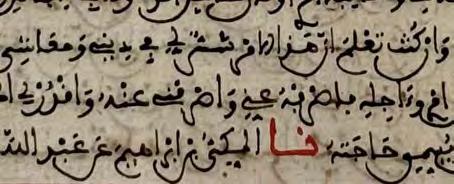 وان كنت تعلم ان هذا الامر شر لي في ديني ومعاشي
امري واجله فاصرفه عني واصرفني عنه واقدر لي ا
يسمي حاجته نا المكي بن ابراهيم عن عبد الله